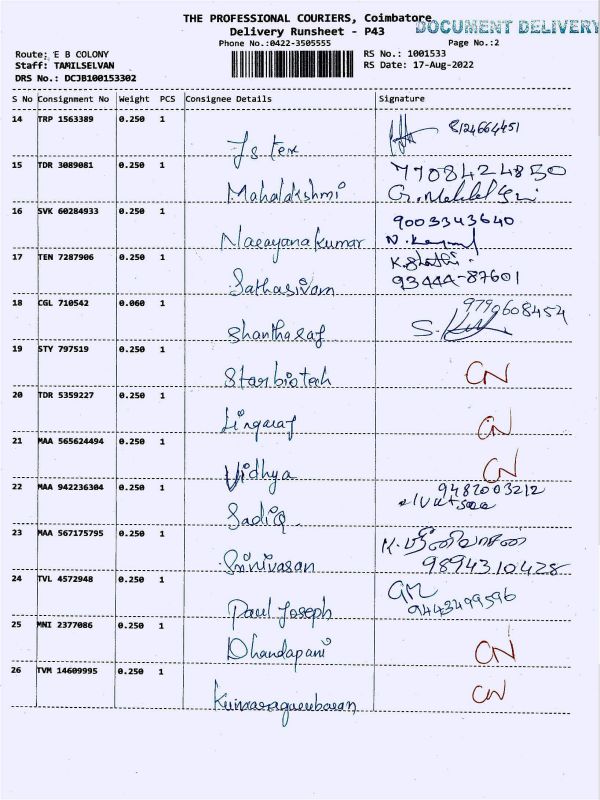 THE PROFESSIONAL COURIERS, Coimbatore
DOCUMENT DELIVERY
Delivery Runsheet - P43
Phone No.:0422-3505555
Page No.:2
Route: E B COLONY
RS No.: 1001533
Staff: TAMILSELVAN
RS Date: 17-Aug-2022
DRS No.: DCJB100153302
S No Consignment No Weight PCS Consignee Details Signature
14 TRP 1563389 0.250 1
Js Tex 8124664451
15 TDR 3089081 0.250 1
Mahalakshmi 7708424850
16 SVK 60284933 0.250 1
Narayanakumar 9003343640
17 TEN 7287906 0.250 1
Sathasivam 93444-87601
18 CGL 710542 0.060 1
Shantharaj 9790608454
19 STY 797519 0.250 1
Starbiotech CN
20 TDR 5359227 0.250 1
Lingaraj CN
21 MAA 565624494 0.250 1
Vidhya CN
22 MAA 942236304 0.250 1
Sadiq 9487003212
23 MAA 567175795 0.250 1
Srinivasan K. ஸ்ரீனிவாசன்
9894310428
24 TVL 4572948 0.250 1
Paul Joseph GM
9443499596
25 MNI 2377086 0.250 1
Dhandapani CN
26 TVM 14609995 0.250 1
Kumaragurubaran CN